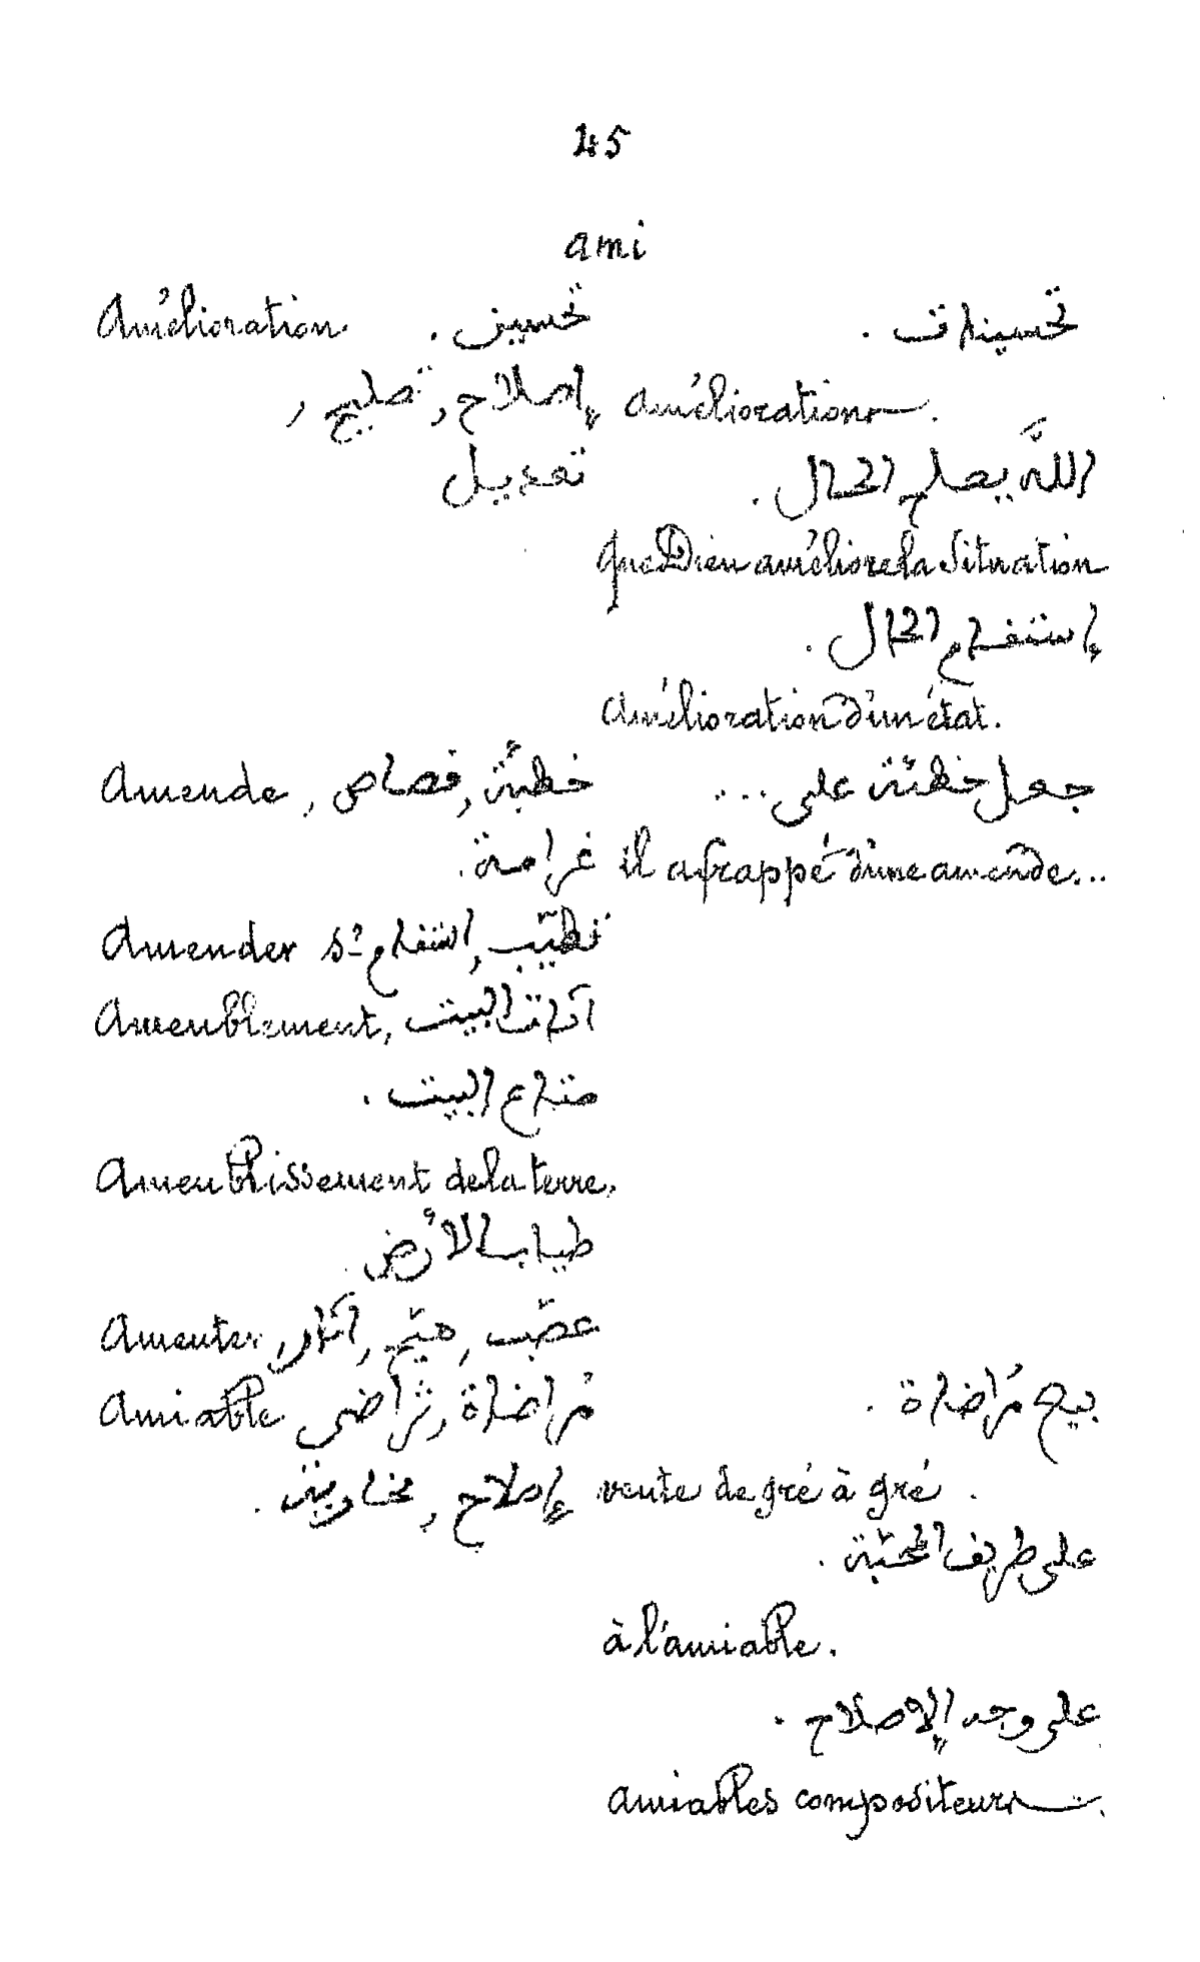 45
ami
Amélioration. تحسين.
إصلاح, تصليح,
تعديل
تحسينات.
améliorations.
الله يصلح الحال.
que Dieu améliore la situation
إستقام الحال.
Amélioration d'un état.
Amende, خطيّة, قصاص,
غرامة.
جعل خطيّة على...
il a frappé d'une amende...
Amender s' تطيّب, استقام
Ameublement, آثاث البيت
متاع البيت.
Ameublissement de la terre.
طياب الأرض
Ameuter, عصّب, هيّج, آثار
Amiable مُراضاة, تراضي
إصلاح,
بيع مُراضاة.
vente de gré à gré.
على طريق المحبّة.
à l'amiable.
على وجه الإصلاح.
amiables compositeurs.